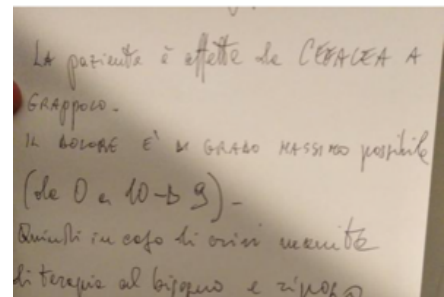 La paziente è affetta da CEFALEA A
GRAPPOLO.
IL DOLORE E' DI GRADO MASSIMO possibile
(da 0 a 10 → 9) -
Quindi in caso di crisi merita
di terapia al bisogno e riposo